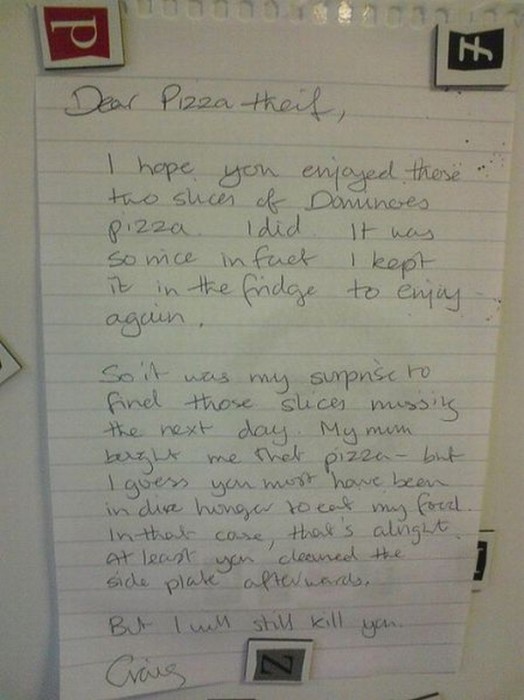 d
f
Dear Pizza theif,
I hope you enjoyed those
two slices of Dominoes
pizza. I did. It was
so nice in fact I kept
it in the fridge to enjoy
again.
So it was my surprise to
find those slices missing
the next day. My mum
bought me that pizza - but
I guess you must have been
in dire hunger to eat my food.
In that case, that's alright.
At least you cleaned the
side plate afterwards.
But I will still kill you.
Craig
N